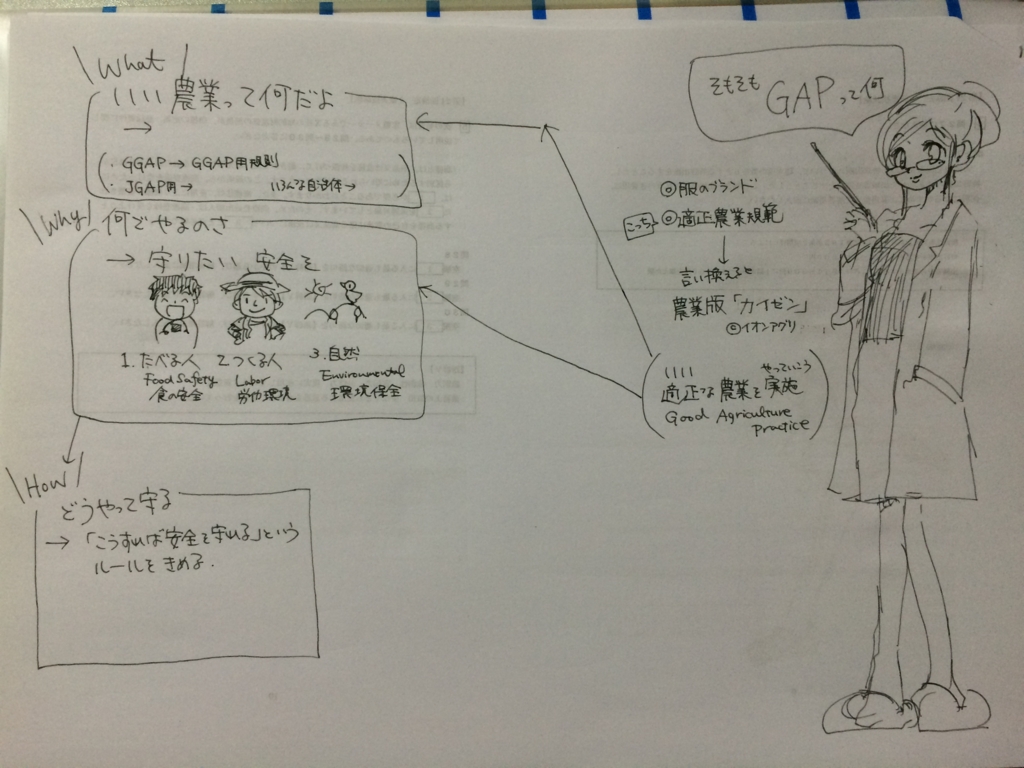 そもそも GAPって何
◎服のブランド
こっち ◎適正農業規範
↓
言い換えると
農業版「カイゼン」
©イオンアグリ
いいい やっていこう
適正な農業を実施
Good Agriculture
Practice
What
いいい農業って何だよ
→
・GGAP→GGAP用規則
・JGAP用→ いろんな自治体→
Why
何でやるのさ
→ 守りたい 安全を
1.たべる人 2つくる人 3.自然
Food Safety Labor Environmental
食の安全 労働環境 環境保全
How
どうやって守る
→「こうすれば安全を守れる」という
ルールをきめる.